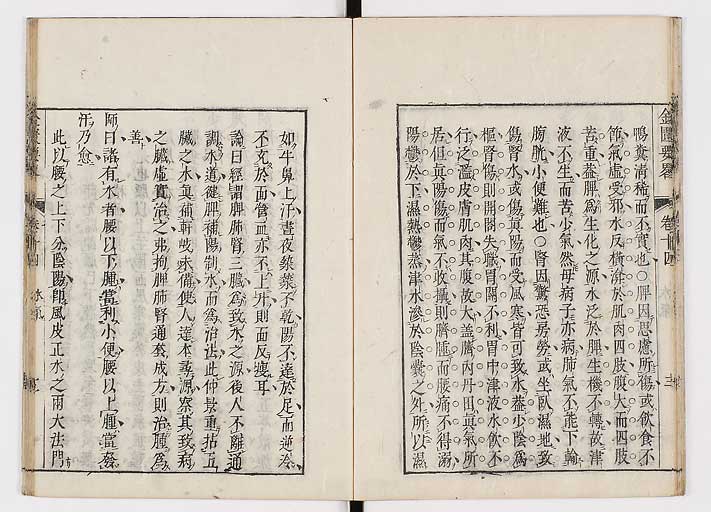 金匱要畧 卷十四 水氣 三
鴨糞清稀而不實也○脾因思慮所傷或飲食不
節氣虛受邪水反橫溢於肌肉四肢腹大而四肢
苦重蓋脾爲生化之源水泛於脾生機不轉故津
液不生而苦少氣然母病子亦病肺氣不能下輸
膀胱小便難也○腎因驚恐房勞或坐臥濕地致
傷腎水或傷真陽而受風寒皆可致水蓋少陰爲
樞腎傷則開闔失職胃關不利胃中津液水飲不
行泛濫皮膚肌肉其腹故大蓋臍內丹田真氣所
居但真陽傷而氣不收攝則臍腫而腰痛不得溺
陽鬱於下濕熱鬱蒸津水滲於陰囊之外所以濕
如牛鼻上汗晝夜漐漐不乾陽不達於足而逆冷
不充於面營血亦不上升則面反瘦耳
論曰經謂脾肺腎三臟爲致水之源後人不離通
調水道健脾補陽制水而爲治法此仲景重拈五
臟之水與補前哲未備使人達本尋源察其致病
之臟虛實治之弗拘脾肺腎通套成方則治腫爲
善
師曰諸有水者腰以下腫當利小便腰以上腫當發
汗乃愈
此以腰之上下分陰陽卽風皮正水之兩大法門